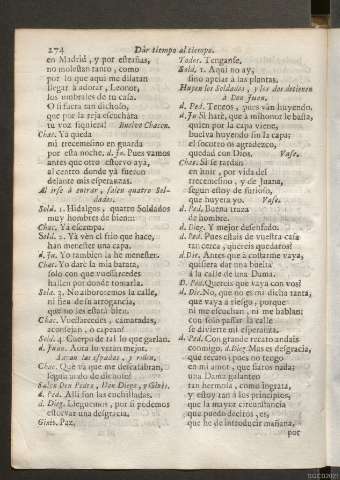 274 Dàr tiempo al tiempo.
en Madrid, y por estrañas,
no molestan tanto, como
por lo que aqui me dilatan
llegar à adorar, Leonor,
los umbrales de tu casa.
O si fuera tan dichoso,
que por la reja escuchàra
tu voz siquiera! Buelve Chacon.
Chac. Ya queda
mi trecemesino en guarda
por esta noche. d. Ju. Pues vamos
antes que otro estorvo aya,
al centro donde yà fueron
delante mis esperanzas.
Al irse à entrar, salen quatro Sol-
dados.
Sold. 1. Hidalgos, quatro Soldados
muy hombres de bien::
Chac. Ya escampa.
Sold. 2. Yà vèn el frio que hace,
han menester una capa.
d. Ju. Yo tambien la he menester.
Chac. Yo darè la mia barata,
solo con que vuessarcedes
hallen por donde tomarla.
Sold. 3. No alborotemos la calle,
ni sea desgarrogancia,
que no les estarà bien.
Chac. Vuessarcedes, camaradas,
aconsejan, ò capean?
Sold. 4. Cuerpo de tal lo que garlan.
d. Juan. Aora lo veràn mejor.
Sacan las espadas, y riñen.
Chac. Què và que me descalabran,
segun ando de dichoso?
Salen Don Pedro, Don Diego, y Ginès.
d. Ped. Alli son las cuchilladas.
d. Dieg. Lleguemos, por si podemos
estorvar una desgracia.
Ginès. Paz.
Todos. Tenganse.
Sold. 1. Aqui no ay,
sino apelar à las plantas.
Huyen los Soldados, y los dos detienen
à Don Juan.
d. Ped. Teneos, pues vàn huyendo.
d. Ju Si harè, que à mi honor le basta,
quien por la capa viene,
buelva huyendo sin la capa;
el socorro os agradezco,
quedad con Dios. Vase.
Chac. Si se tardàn
en huir, por vida del
trecemesino, y de Juana,
segun estoy de furioso,
que huyera yo. Vase.
d. Ped. Buena traza
de hombre.
d. Dieg. Y mejor desenfado.
d. Ped. Pues estais de vuestra casa
tan cerca, quereis quedaros?
d. Die. Antes que à costarme vaya,
quisiera dar una buelta
à la calle de una Dama.
D. Ped. Quereis que vaya con vos?
d. Die. No, que no es mi dicha tanta,
que vaya à riesgo, porque
ni me escuchan, ni me hablan;
con solo passar la calle
se divierte mi esperanza.
d. Ped. Con grande recato andais
conmigo. d. Dieg. Mas es desgracia,
que recato; pues no tengo
en mi amor, que fiaros nada;
una Dama galanteo
tan hermosa, como ingrata,
y estoy tan à los principios,
que la mayor circunstancia
que puedo deciros, es,
que he de introducir mañana,
por